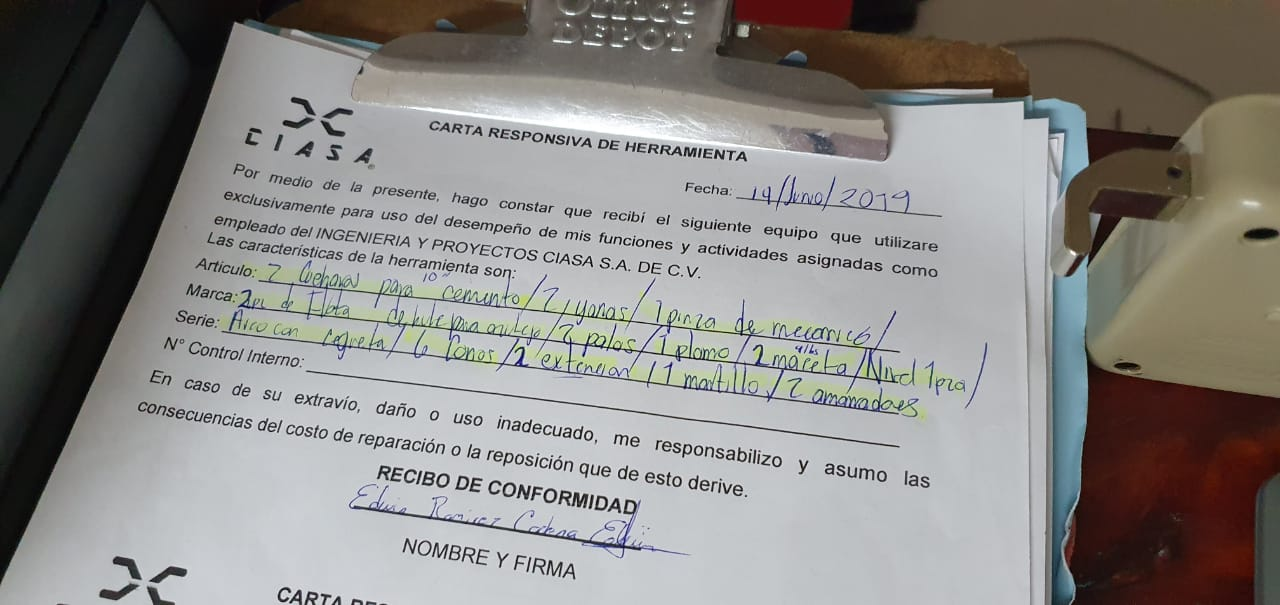 Office
DEPOT
CIASA
CARTA RESPONSIVA DE HERRAMIENTA
Fecha: 14/Junio/2019
Por medio de la presente, hago constar que recibí el siguiente equipo que utilizare
exclusivamente para uso del desempeño de mis funciones y actividades asignadas como
empleado del INGENIERIA Y PROYECTOS CIASA S.A. DE C.V.
Las características de la herramienta son:
Articulo: 2 Cucharas para 10" cemento/2 Llanas/1 pinza de mecanico/
Marca: 2 de Flota de hule para /2 palas/1 plomo/2 maceta 4 lbs/Nivel 1 pza/
Serie: Arco con segueta/6 Conos/2 extencion/1 martillo/2
N° Control Interno:
En caso de su extravío, daño o uso inadecuado, me responsabilizo y asumo las
consecuencias del costo de reparación o la reposición que de esto derive.
RECIBO DE CONFORMIDAD
Edwin Ramirez Cadena
NOMBRE Y FIRMA